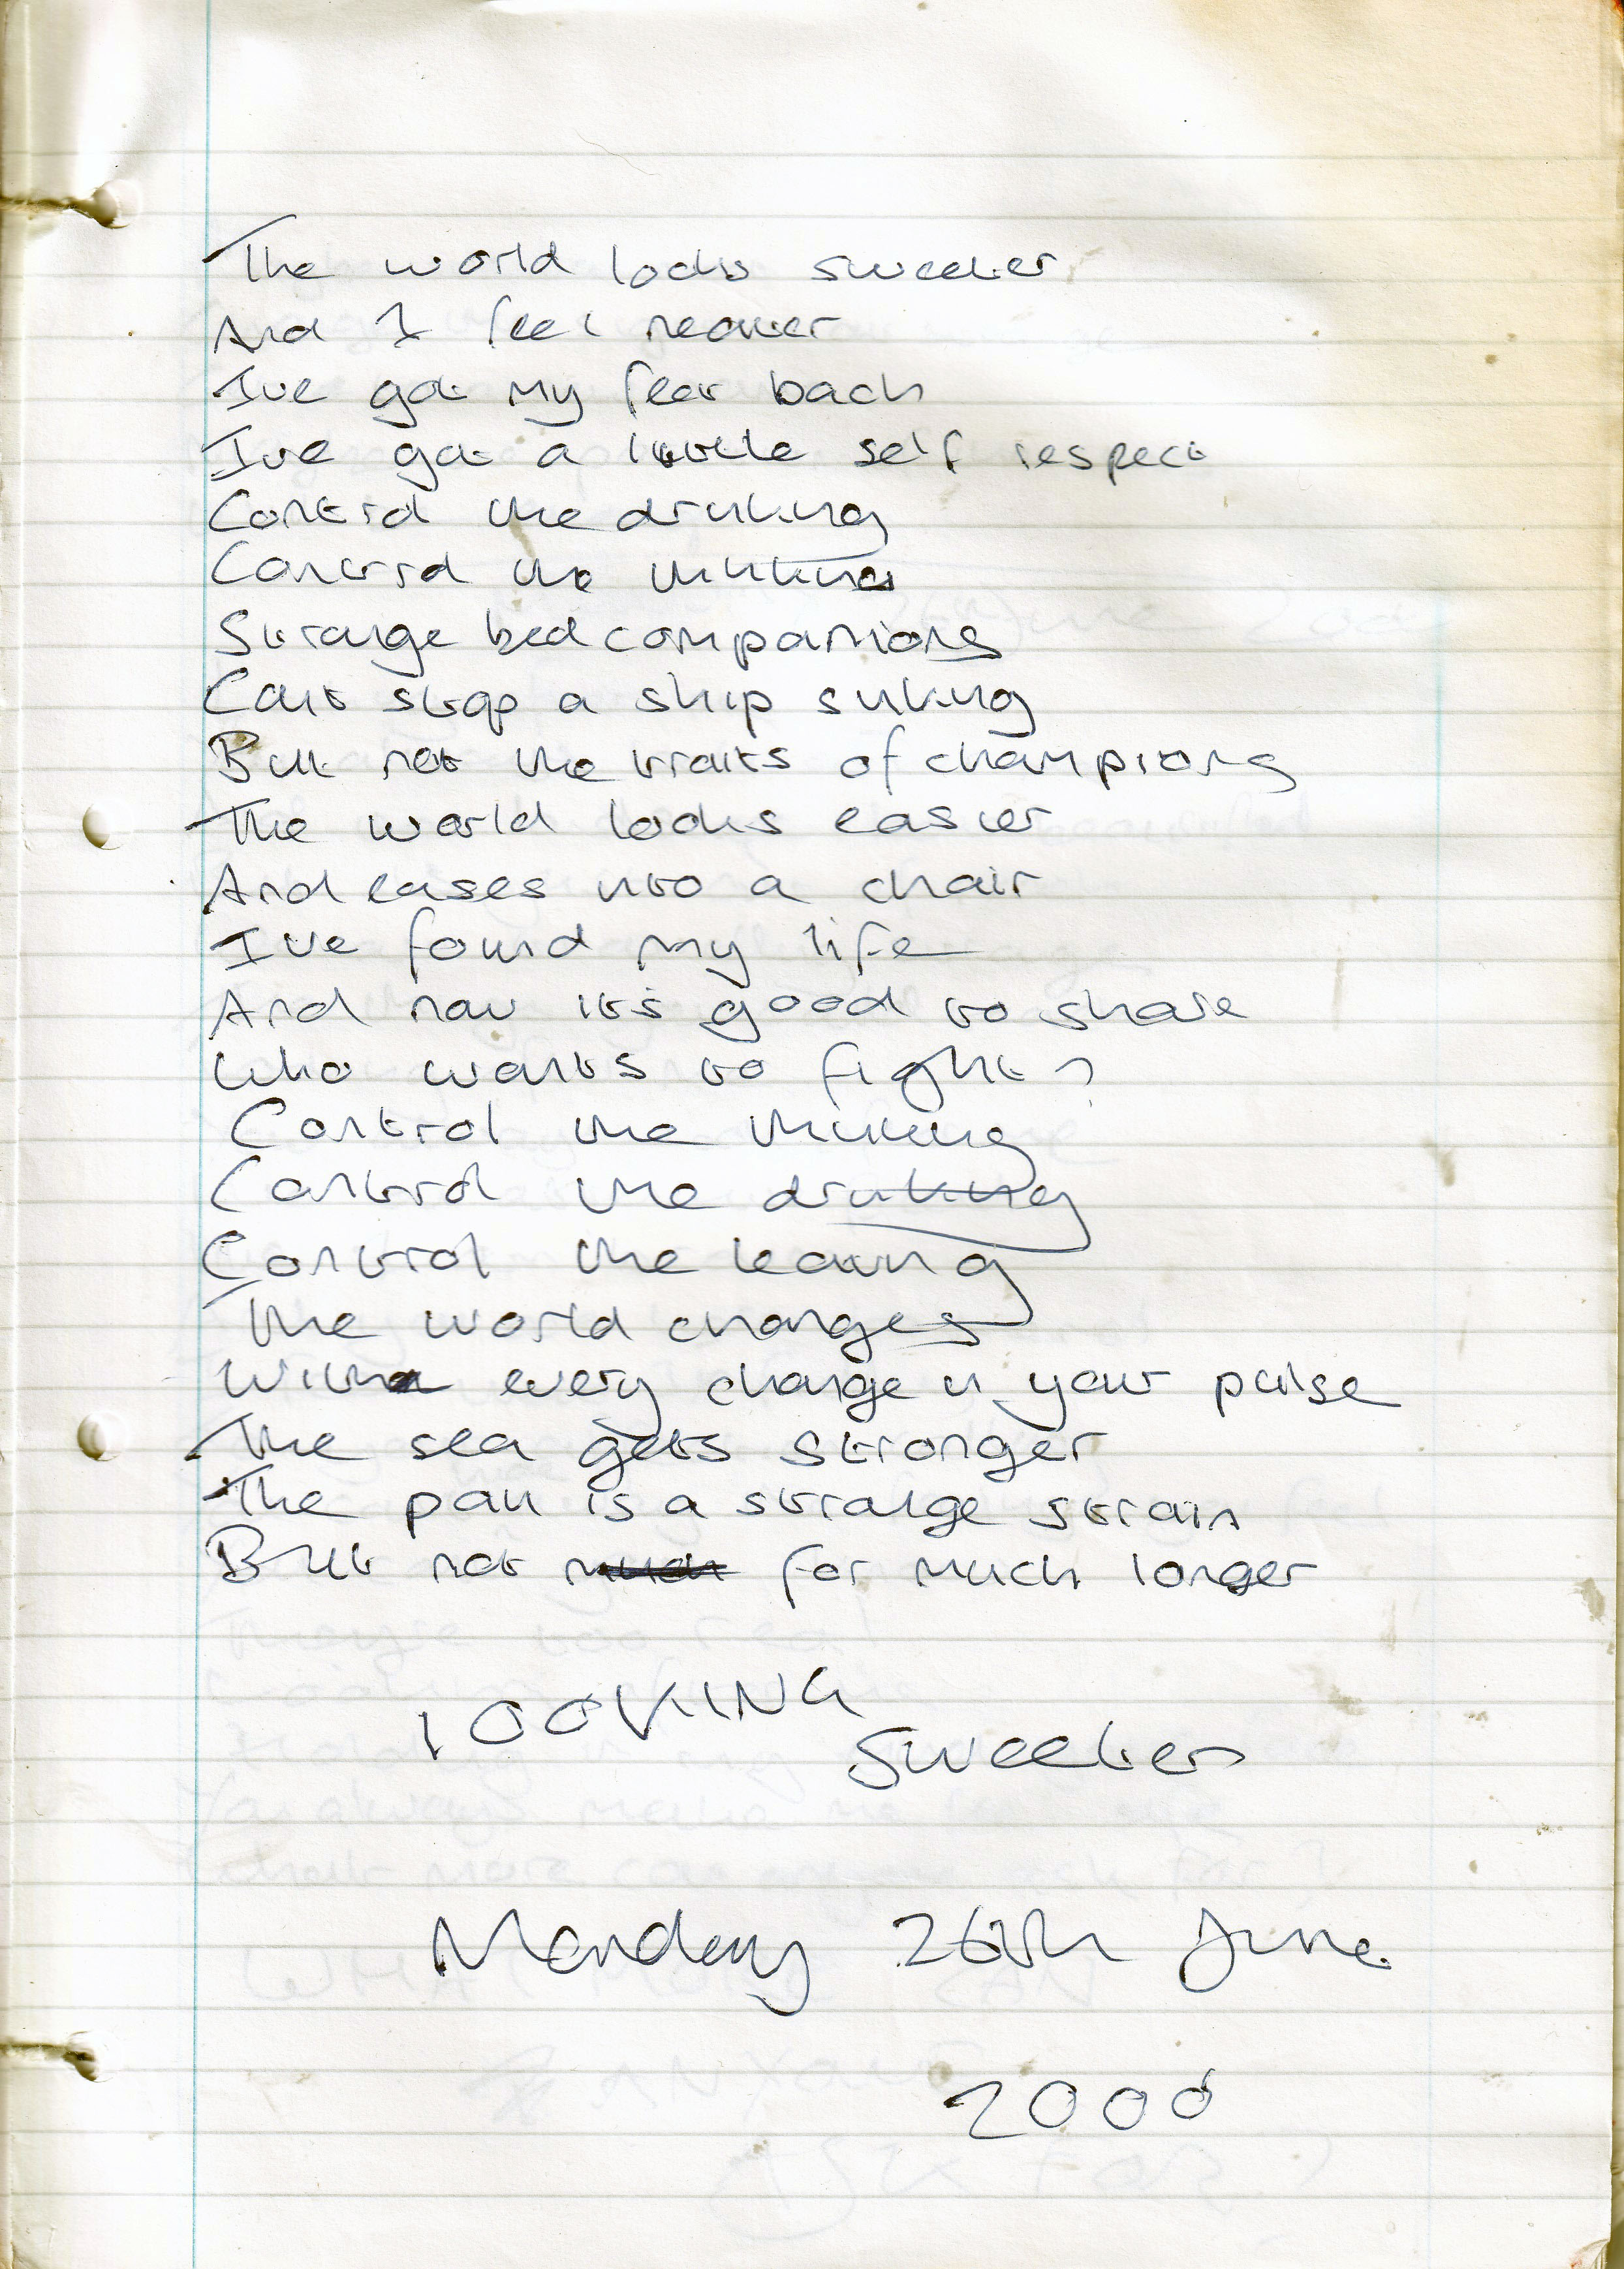 The world looks sweeter
And I feel neater
Ive got my fear back
Ive got a little self respect
Control the drinking
Control the thinking
Strange bed companions
Cant stop a ship sinking
But not the traits of champions
The world looks easier
And eases into a chair
Ive found my life
And now its good to share
Who wants to fight?
Control the thinking
Control the drinking
Control the leaving
The world changes
With every change in your pulse
The sea gets stronger
The pain is a strange strain
But not much for much longer
LOOKING
Sweeter
Monday 26th June
2000